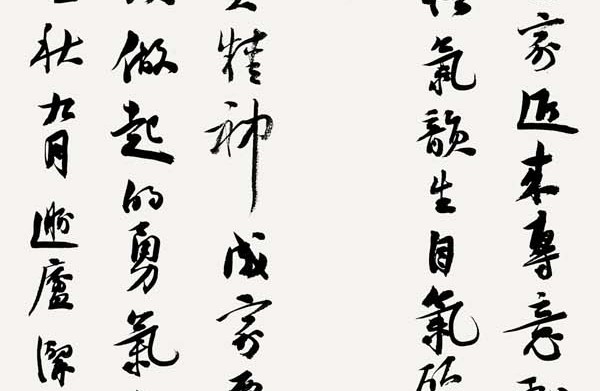 家近来專意
氣韻生自氣
精神成家
做起的勇氣
秋九月遯廬